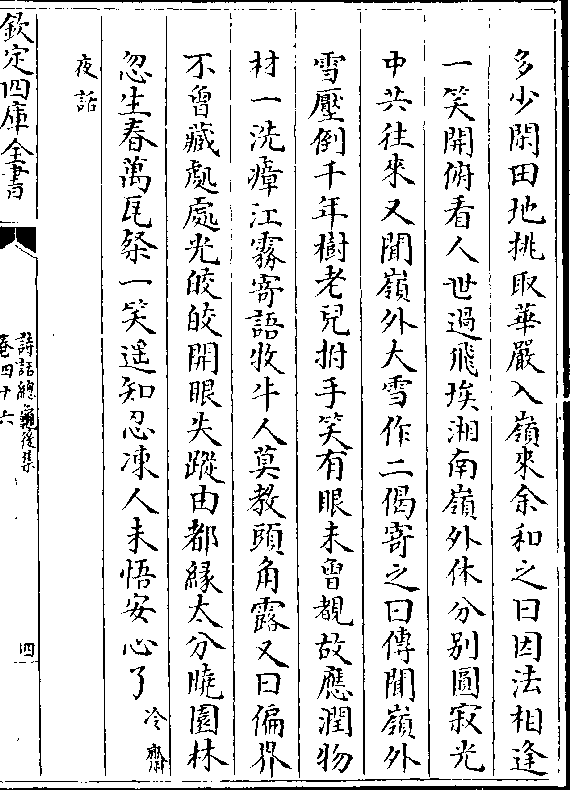 多少閑田地挑取華嚴入嶺來余和之曰因法相逢
一笑開俯看人世過飛埃湘南嶺外休分别圓寂光
中共往來又聞嶺外大雪作二偈寄之曰傳聞嶺外
雪壓倒千年樹老兒拊手笑有眼未曾覩故應潤物
材一洗瘴江霧寄語牧牛人莫教頭角露又曰徧界
不曾藏處處光皎皎開眼失蹤由都緣太分曉園林
忽生春萬瓦粲一笑遥知忍凍人未悟安心了冷齋
夜話
欽定四庫全書
詩話總龜後集
卷四十六
四